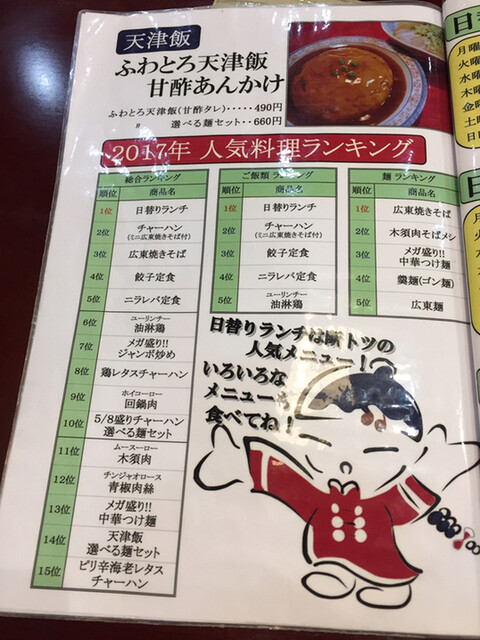 天津飯
ふわとろ天津飯
甘酢あんかけ
ふわとろ天津飯(甘酢タレ)・・・・・490円
〃 選べる麺セット・・660円
2017年 人気料理ランキング
総合ランキング
順位 商品名
1位 日替りランチ
2位 チャーハン
(ミニ広東焼きそば付)
3位 広東焼きそば
4位 餃子定食
5位 ニラレバ定食
6位 ユーリンチー
油淋鶏
7位 メガ盛り!!
ジャンボ炒め
8位 鶏レタスチャーハン
9位 ホイコーロー
回鍋肉
10位 5/8盛りチャーハン
選べる麺セット
11位 ムースーロー
木須肉
12位 チンジャオロース
青椒肉絲
13位 メガ盛り!!
中華つけ麺
14位 天津飯
選べる麺セット
15位 ピリ辛海老レタス
チャーハン
ご飯類 ランキング
順位 商品名
1位 日替りランチ
2位 チャーハン
(ミニ広東焼きそば付)
3位 餃子定食
4位 ニラレバ定食
5位 ユーリンチー
油淋鶏
麺 ランキング
順位 商品名
1位 広東焼きそば
2位 木須肉そばメシ
3位 メガ盛り!!
中華つけ麺
4位 羹麺(ゴン麺)
5位 広東麺
日替りランチは断トツの
人気メニュー!
いろいろな
メニューも
食べてね!
日
月曜
火曜
水曜
木曜
金曜
土曜
日
日